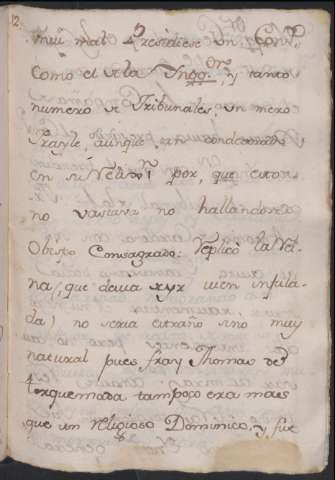 12.
muy mal Presidiese un Conso.
como el de la Inqqon. y tanto
numero de Tribunales, un mero
frayle, aunque tan condecorado
en su Relign. por, que esto
no vastava no hallandose
Obispo Consagrado: replicó la Rei-
na, que
no seria estraño sino muy
natural pues fray Thomas de
torquemada tampoco era mas
que un religioso Dominico, y fue